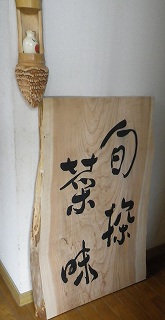 旬採
菜味